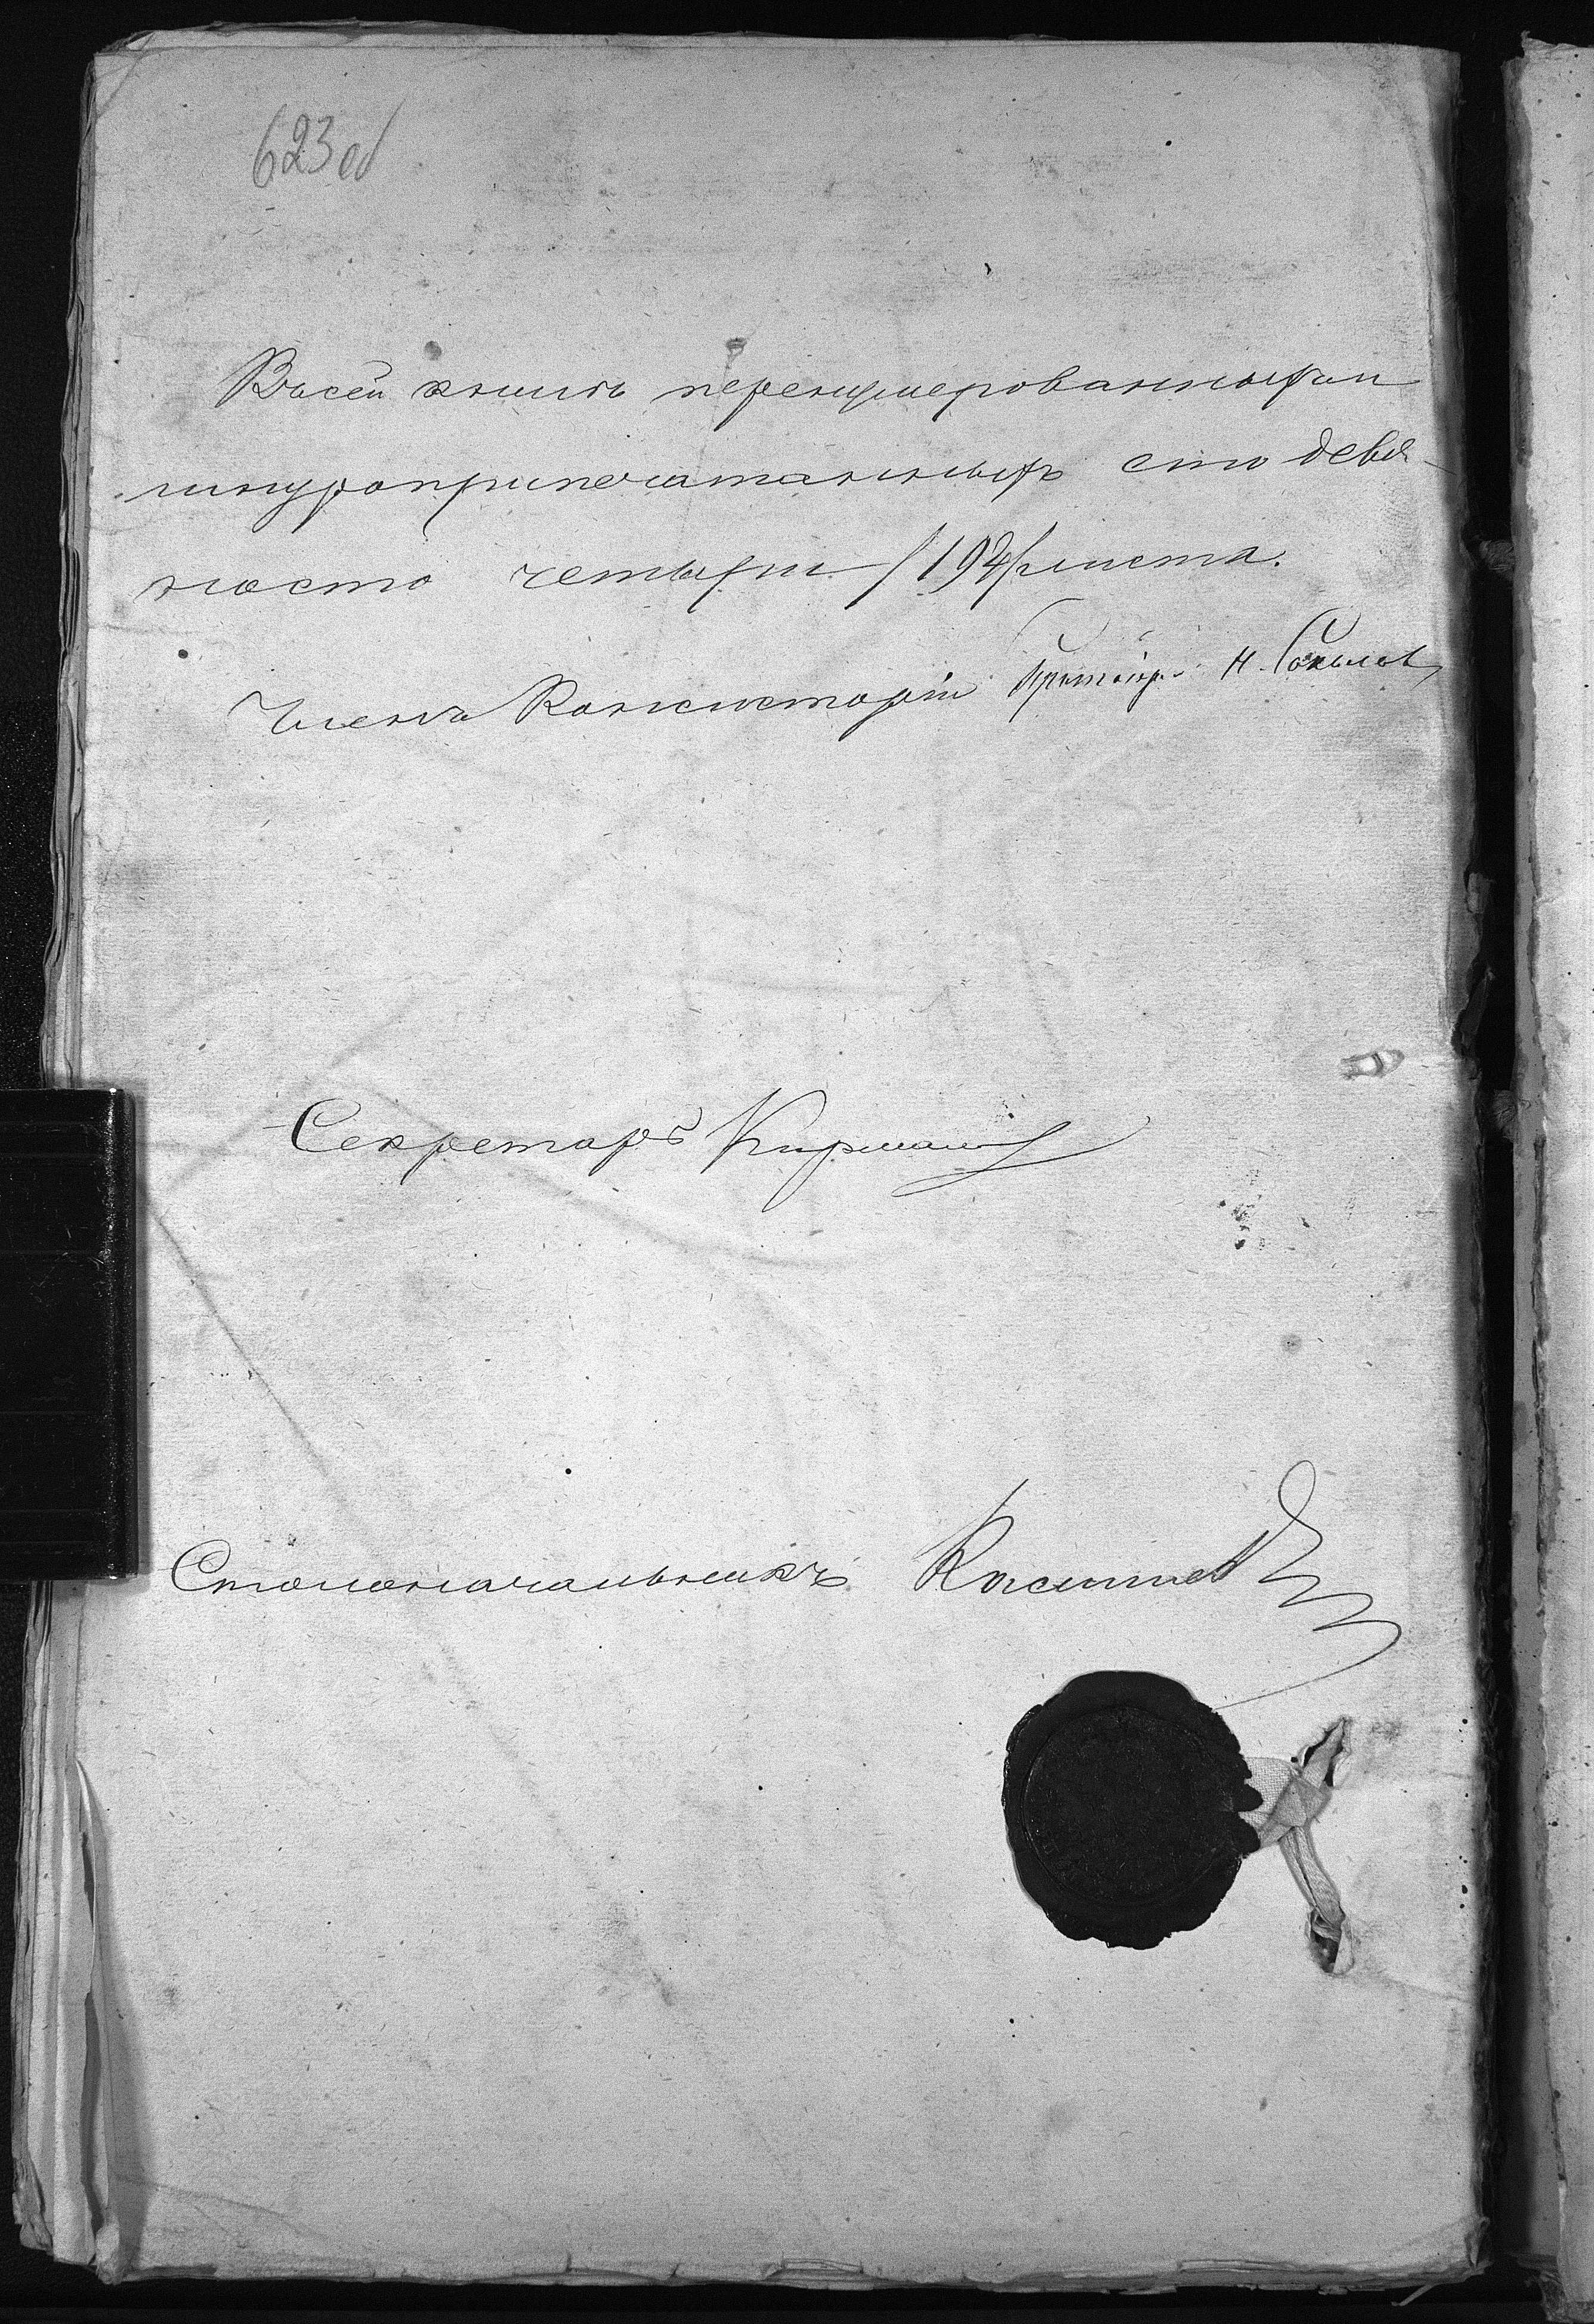 623 об
Въ сей книгѣ перенумерованныхъ и
шнуроприпечатанныхъ сто девя-
носто четыре /194/ листа.
Членъ Консисторіи Протоіерей Н. Соколов
Секретарь
Столоначальникъ